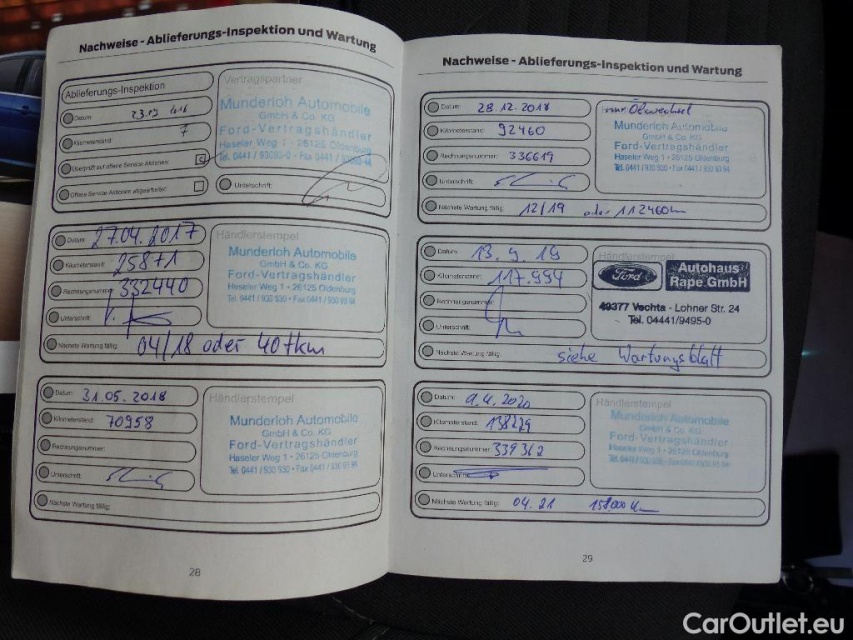 Nachweise - Ablieferungs-Inspektion und Wartung
Ablieferungs-Inspektion
Datum:
Kilometerstand: 7
Überprüft auf offene Service Aktionen:
Offene Service Aktionen abgearbeitet:
Vertragspartner
Munderloh Automobile
GmbH & Co. KG
Ford-Vertragshändler
Haseler Weg 1 • 26125 Oldenburg
Unterschrift:
Datum: 27.04.2017
Kilometerstand: 25871
Rechnungsnummer: 332440
Unterschrift:
Nächste Wartung fällig: 04/18 oder 40tkm
Händlerstempel
Munderloh Automobile
GmbH & Co. KG
Ford-Vertragshändler
Haseler Weg 1 • 26125 Oldenburg
Tel. 0441 / 930 930 • Fax 0441 / 930 93 94
Datum: 31.05.2018
Kilometerstand: 70958
Rechnungsnummer:
Unterschrift:
Nächste Wartung fällig:
Händlerstempel
Munderloh Automobile
GmbH & Co. KG
Ford-Vertragshändler
Haseler Weg 1 • 26125 Oldenburg
Tel. 0441 / 930 930 • Fax 0441 / 930 93 94
28
Nachweise - Ablieferungs-Inspektion und Wartung
Datum: 28.12.2018
Kilometerstand: 92460
Rechnungsnummer: 336619
Unterschrift:
Nächste Wartung fällig: 12/19 oder 112460km
nur Ölwechsel
Munderloh Automobile
GmbH & Co. KG
Ford-Vertragshändler
Haseler Weg 1 • 26125 Oldenburg
Tel. 0441 / 930 930 • Fax 0441 / 930 93 94
Datum: 13.9.19
Kilometerstand: 117.994
Rechnungsnummer:
Unterschrift:
Nächste Wartung fällig: siehe Wartungsblatt
Händlerstempel
Ford
Autohaus
Rape GmbH
49377 Vechta - Lohner Str. 24
Tel. 04441/9495-0
Datum: 9.4.2020
Kilometerstand: 138229
Rechnungsnummer: 339362
Unterschrift:
Nächste Wartung fällig: 04.21 158.000 km
Händlerstempel
Munderloh Automobile
GmbH & Co. KG
Ford-Vertragshändler
Haseler Weg 1 • 26125 Oldenburg
29
CarOutlet.eu